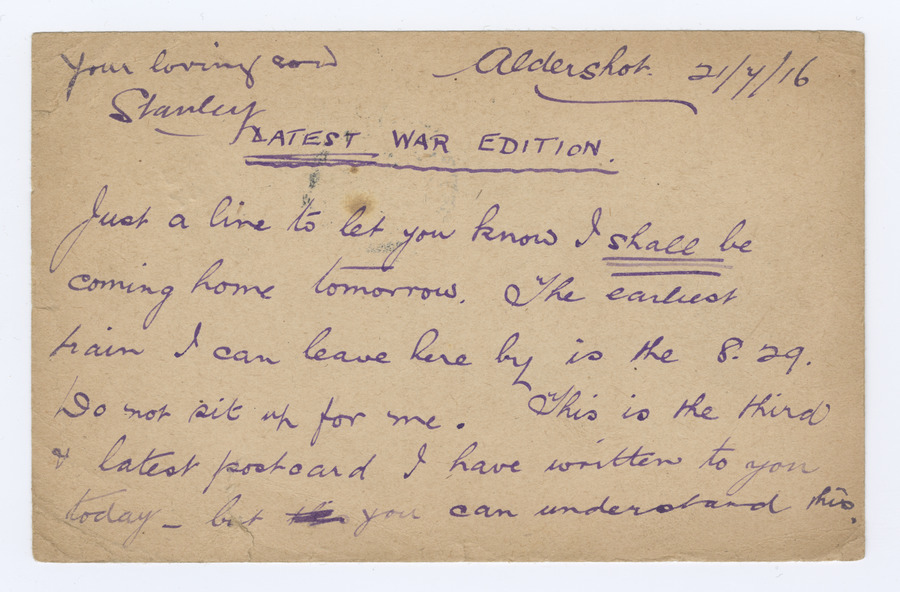 Your loving son
Stanley
Aldershot. 21/7/16
LATEST WAR EDITION.
Just a line to let you know I shall be
coming home tomorrow. The earliest
train I can leave here by is the 8.29.
Do not sit up for me. This is the third
& latest postcard I have written to you
today – but you can understand this.